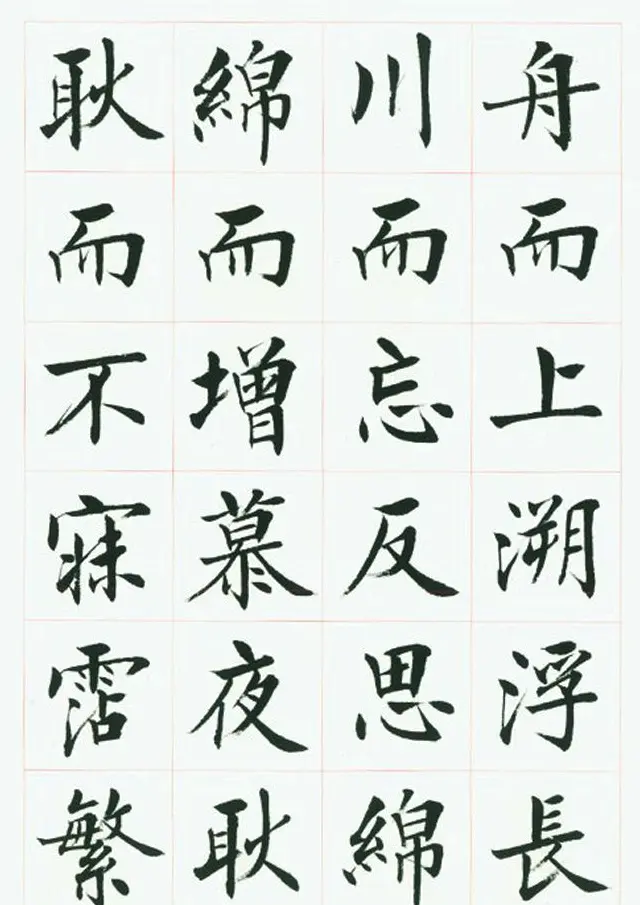 舟而上溯浮長
川而忘反思綿
綿而增慕夜耿
耿而不寐霑繁